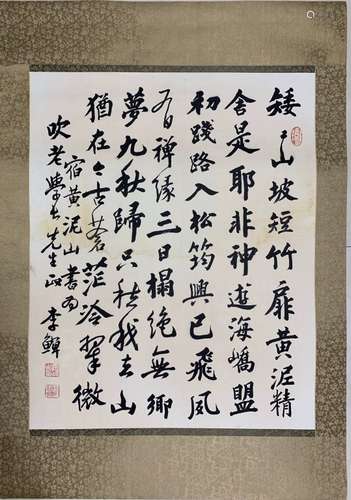 矮々山坡短竹扉黃泥精
舍是耶非神遊海嶠盟
初踐路入松筠興已飛夙
有日禪緣三日榻絕無鄉
夢九秋歸只愁我去山
猶在今古蒼茫冷翠微
宿黃泥山書為
吹老學長先生政 李鱓